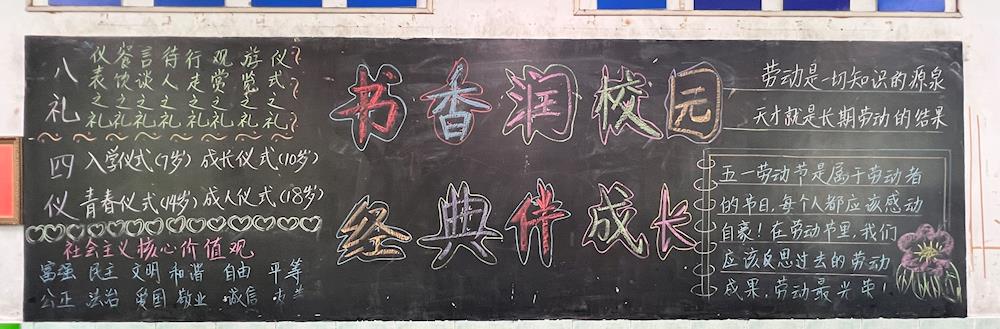 八礼
仪餐言待行观游仪
表饮谈人走赏览式
之之之之之之之之
礼礼礼礼礼礼礼礼
四仪
入学仪式(7岁) 成长仪式(10岁)
青春仪式(14岁) 成人仪式(18岁)
社会主义核心价值观
富强 民主 文明 和谐 自由 平等
公正 法治 爱国 敬业 诚信 友善
书香润校园
经典伴成长
劳动是一切知识的源泉
天才就是长期劳动的结果
五一劳动节是属于劳动者
的节日,每个人都应该感动
自豪!在劳动节里,我们
应该反思过去的劳动
成果,劳动最光荣!